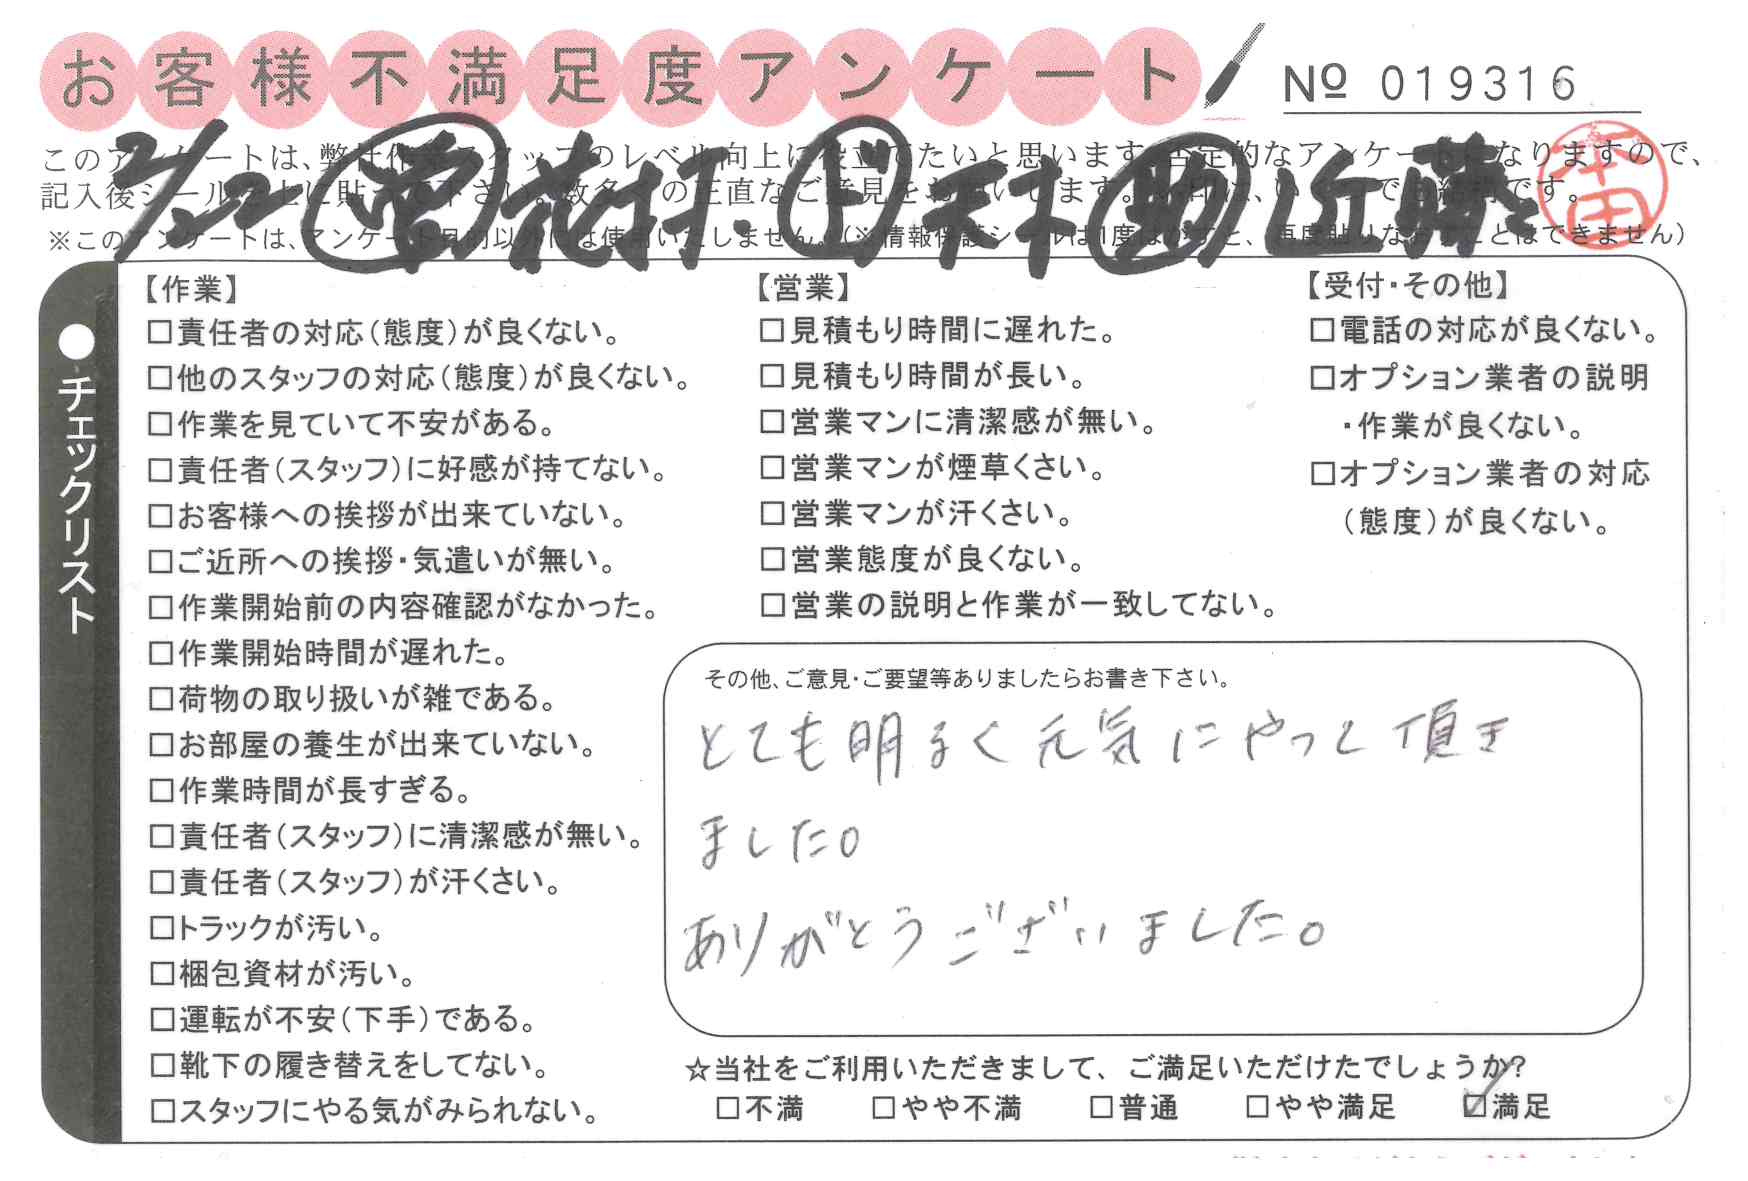 お客様不満足度アンケート
№ 019316
2/22 営 花村・ド 天林 助 近藤
本田
このアンケートは、弊社作業スタッフのレベル向上に役立てたいと思います。否定的なアンケートになりますので、
記入後シールを上に貼って下さい。数多くの正直なご意見をお願いします。
※このアンケートは、アンケート目的以外には使用いたしません。(※情報保護シールは1度はがすと、再度貼りなおすことはできません)
●チェックリスト
【作業】
□責任者の対応(態度)が良くない。
□他のスタッフの対応(態度)が良くない。
□作業を見ていて不安がある。
□責任者(スタッフ)に好感が持てない。
□お客様への挨拶が出来ていない。
□ご近所への挨拶・気遣いが無い。
□作業開始前の内容確認がなかった。
□作業開始時間が遅れた。
□荷物の取り扱いが雑である。
□お部屋の養生が出来ていない。
□作業時間が長すぎる。
□責任者(スタッフ)に清潔感が無い。
□責任者(スタッフ)が汗くさい。
□トラックが汚い。
□梱包資材が汚い。
□運転が不安(下手)である。
□靴下の履き替えをしてない。
□スタッフにやる気がみられない。
【営業】
□見積もり時間に遅れた。
□見積もり時間が長い。
□営業マンに清潔感が無い。
□営業マンが煙草くさい。
□営業マンが汗くさい。
□営業態度が良くない。
□営業の説明と作業が一致してない。
【受付・その他】
□電話の対応が良くない。
□オプション業者の説明
・作業が良くない。
□オプション業者の対応
(態度)が良くない。
その他、ご意見・ご要望等ありましたらお書き下さい。
とても明るく元気にやって頂き
ました。
ありがとうございました。
☆当社をご利用いただきまして、ご満足いただけたでしょうか?
□不満 □やや不満 □普通 □やや満足 ☑満足